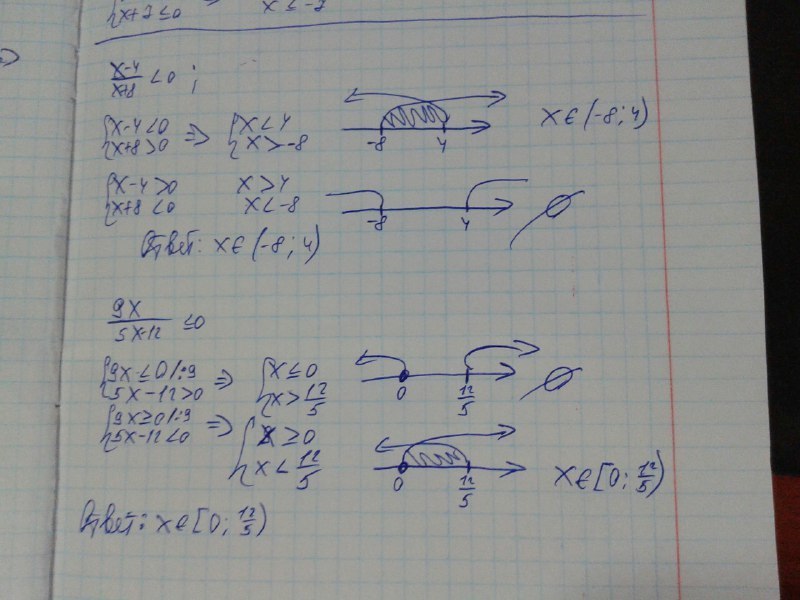 {x+2≤0 ⇒ x≤-2
(x-4)/(x+8) <0 ;
{x-4<0 ⇒ {x<4
{x+8>0 {x>-8
-8 4
x∈(-8; 4)
{x-4>0 x>4
{x+8<0 x<-8
-8 4 ∅
Ответ: x∈(-8; 4)
9x/(5x-12) ≤0
{9x≤0 /:9 ⇒ {x≤0
{5x-12>0 {x>12/5
0 12/5 ∅
{9x≥0 /:9 ⇒ {x≥0
{5x-12<0 {x<12/5
0 12/5
x∈[0; 12/5)
Ответ: x∈[0; 12/5)